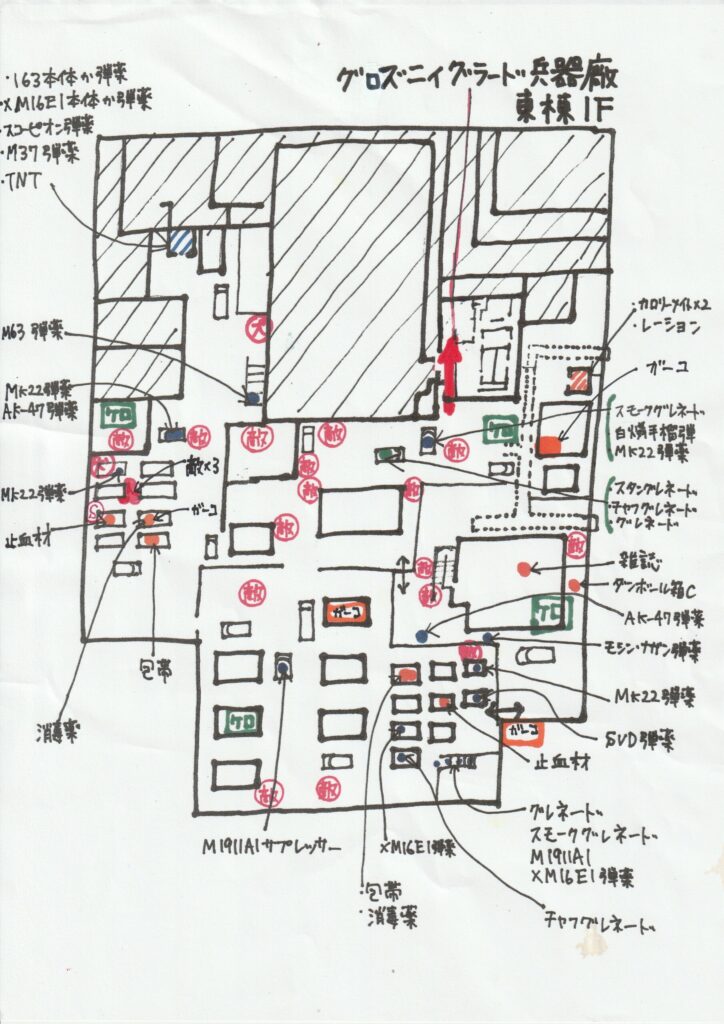 グロズニィグラード兵器廠
東棟1F
・163本体か弾薬
・XM16E1本体か弾薬
・スコーピオン弾薬
・M37弾薬
・TNT
・カロリーメイト×2
・レーション
M63弾薬
犬
ガーコ
MK22弾薬
AK-47弾薬
ケロ
敵
敵
敵
敵
敵
ケロ
スモークグレネード
白燐手榴弾
MK22弾薬
犬
敵×3
敵
敵
敵
MK22弾薬
スタングレネード
チャフグレネード
グレネード
止血材
ガーコ
敵
敵
敵
雑誌
敵
敵
ダンボール箱C
ガーコ
ケロ
AK-47弾薬
包帯
敵
モシン・ナガン弾薬
MK22弾薬
消毒薬
ケロ
ガーコ
SVD弾薬
止血材
敵
敵
M1911A1サプレッサー
XM16E1弾薬
グレネード
スモークグレネード
M1911A1
XM16E1弾薬
・包帯
・消毒薬
チャフグレネード